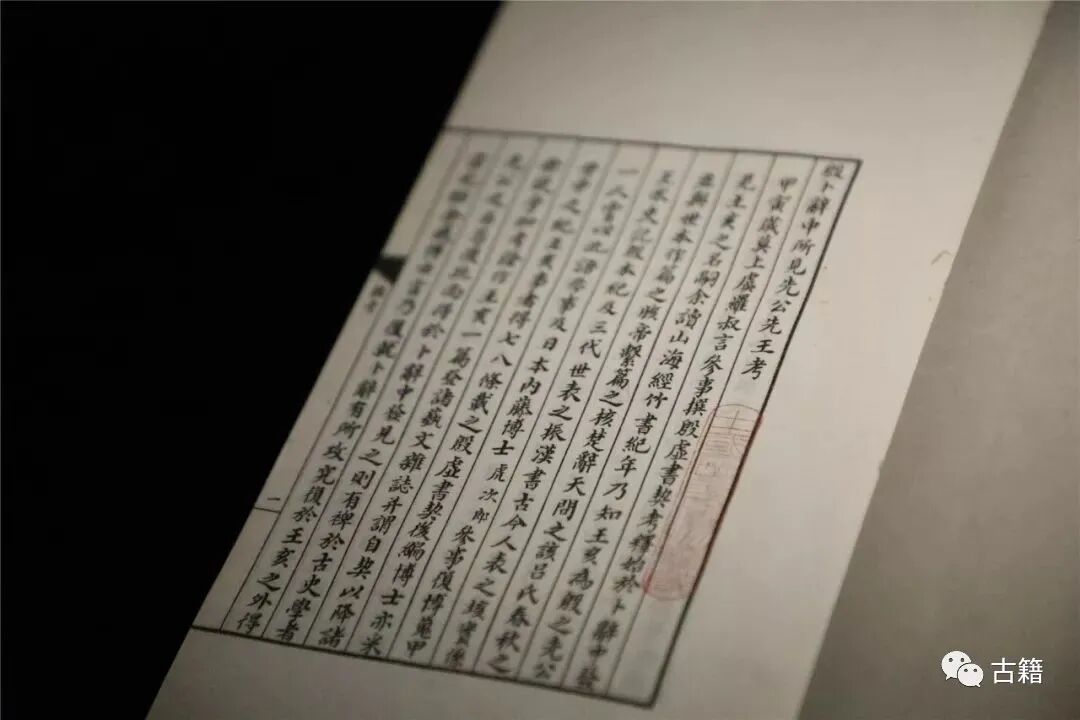 殷卜辭中所見先公先王考
甲寅歲莫上虞羅叔言參事撰殷虛書契考釋始於卜辭中發
見王亥之名嗣余讀山海經竹書紀年乃知王亥為殷之先公
並與世本作篇之胲帝繫篇之核楚辭天問之該呂氏春秋之
王氷史記殷本紀及三代世表之振漢書古今人表之垓實係
一人嘗以此語參事及日本內藤博士虎次郎參事復博蒐甲
骨中之紀王亥事者得七八條載之殷虛書契後編博士亦采
余說旁加考證作王亥一篇諸蓺文雜誌并謂自契以降諸
先公之名苟後此尚得於卜辭中檢見之則有裨於古史學者
當尤鉅余感博士言乃復就卜辭有所攻究復於王亥之外得
一
古籍